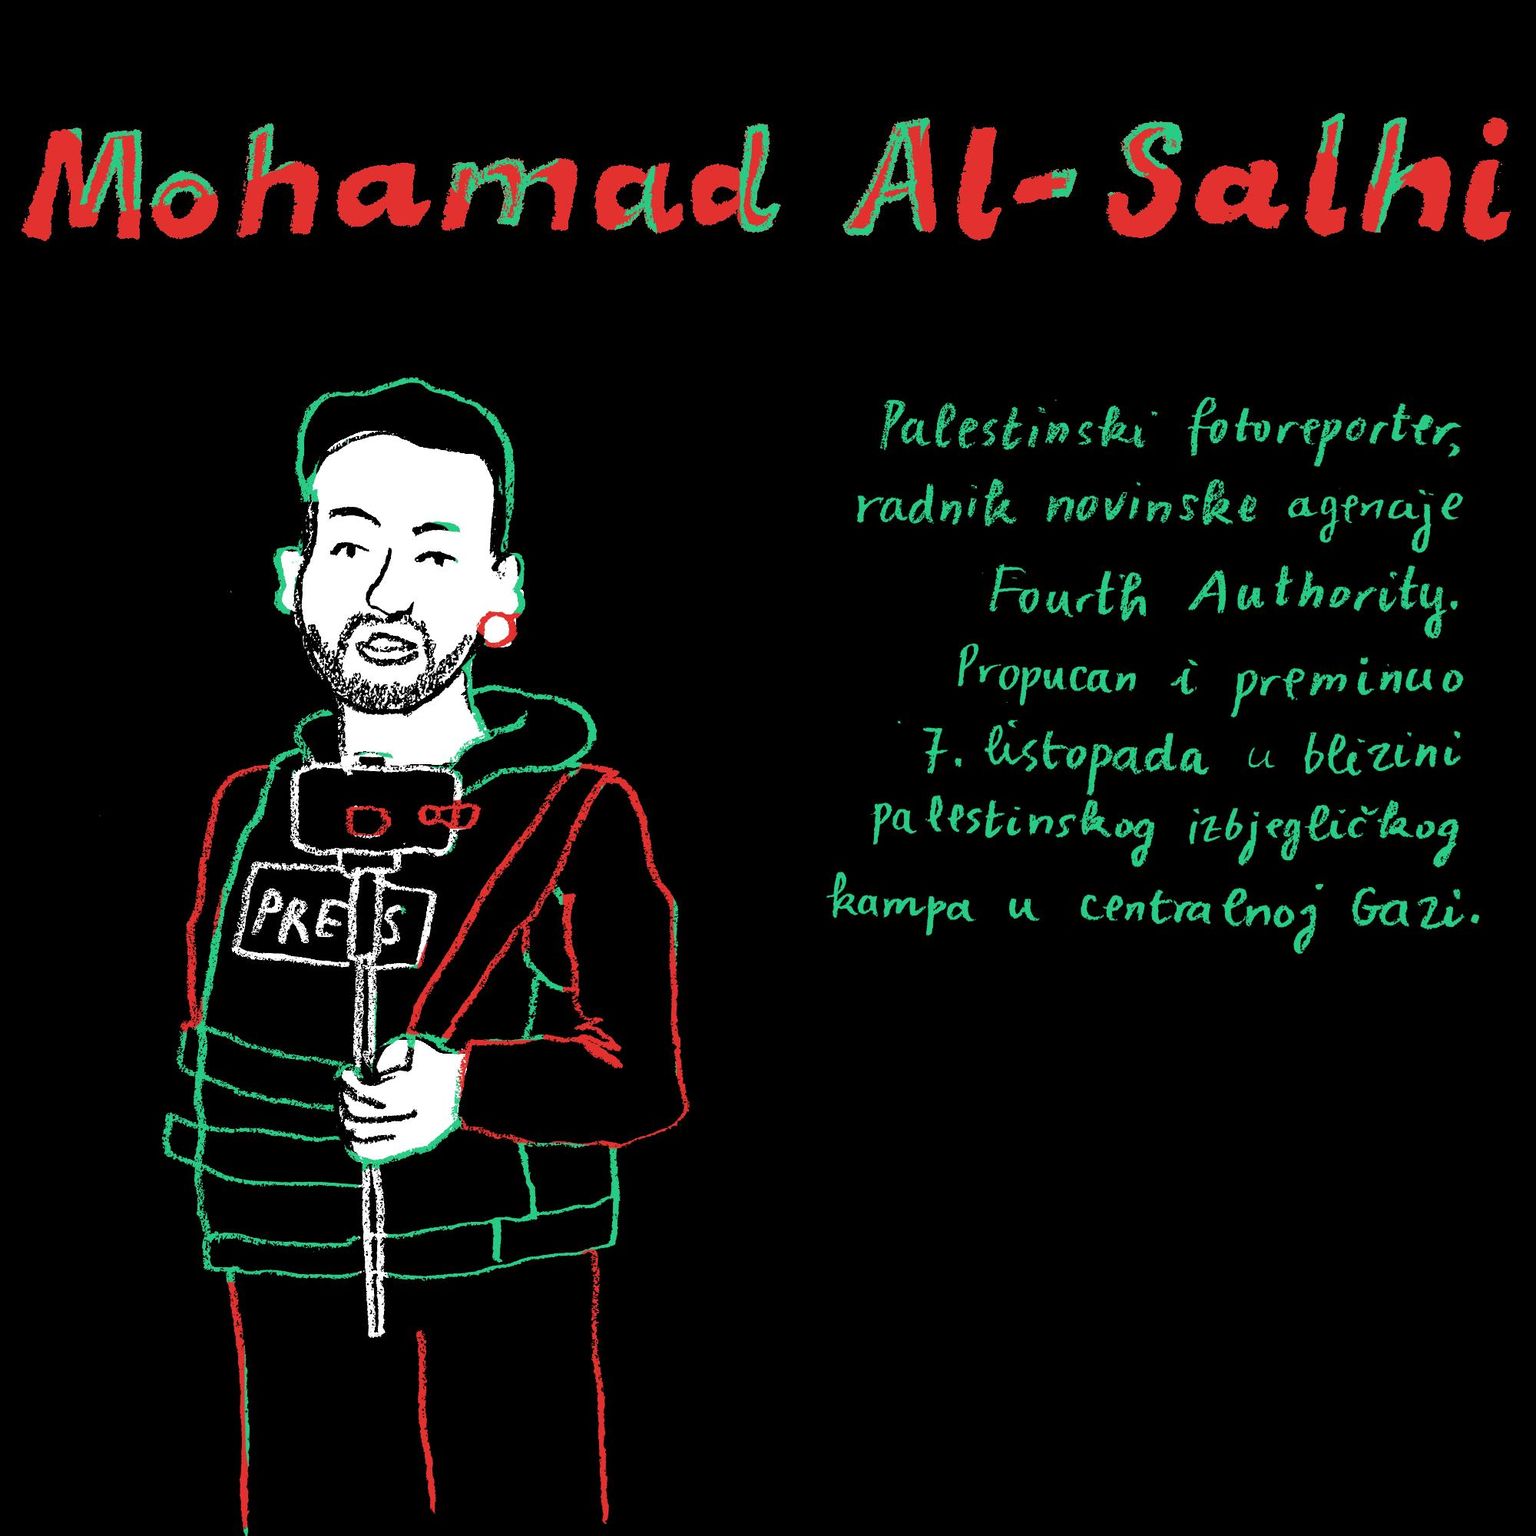 Mohamad Al-Salhi
Palestinski fotoreporter,
radnik novinske agencije
Fourth Authority.
Propucan i preminuo
7. listopada u blizini
palestinskog izbjegličkog
kampa u centralnoj Gazi.
PRESS